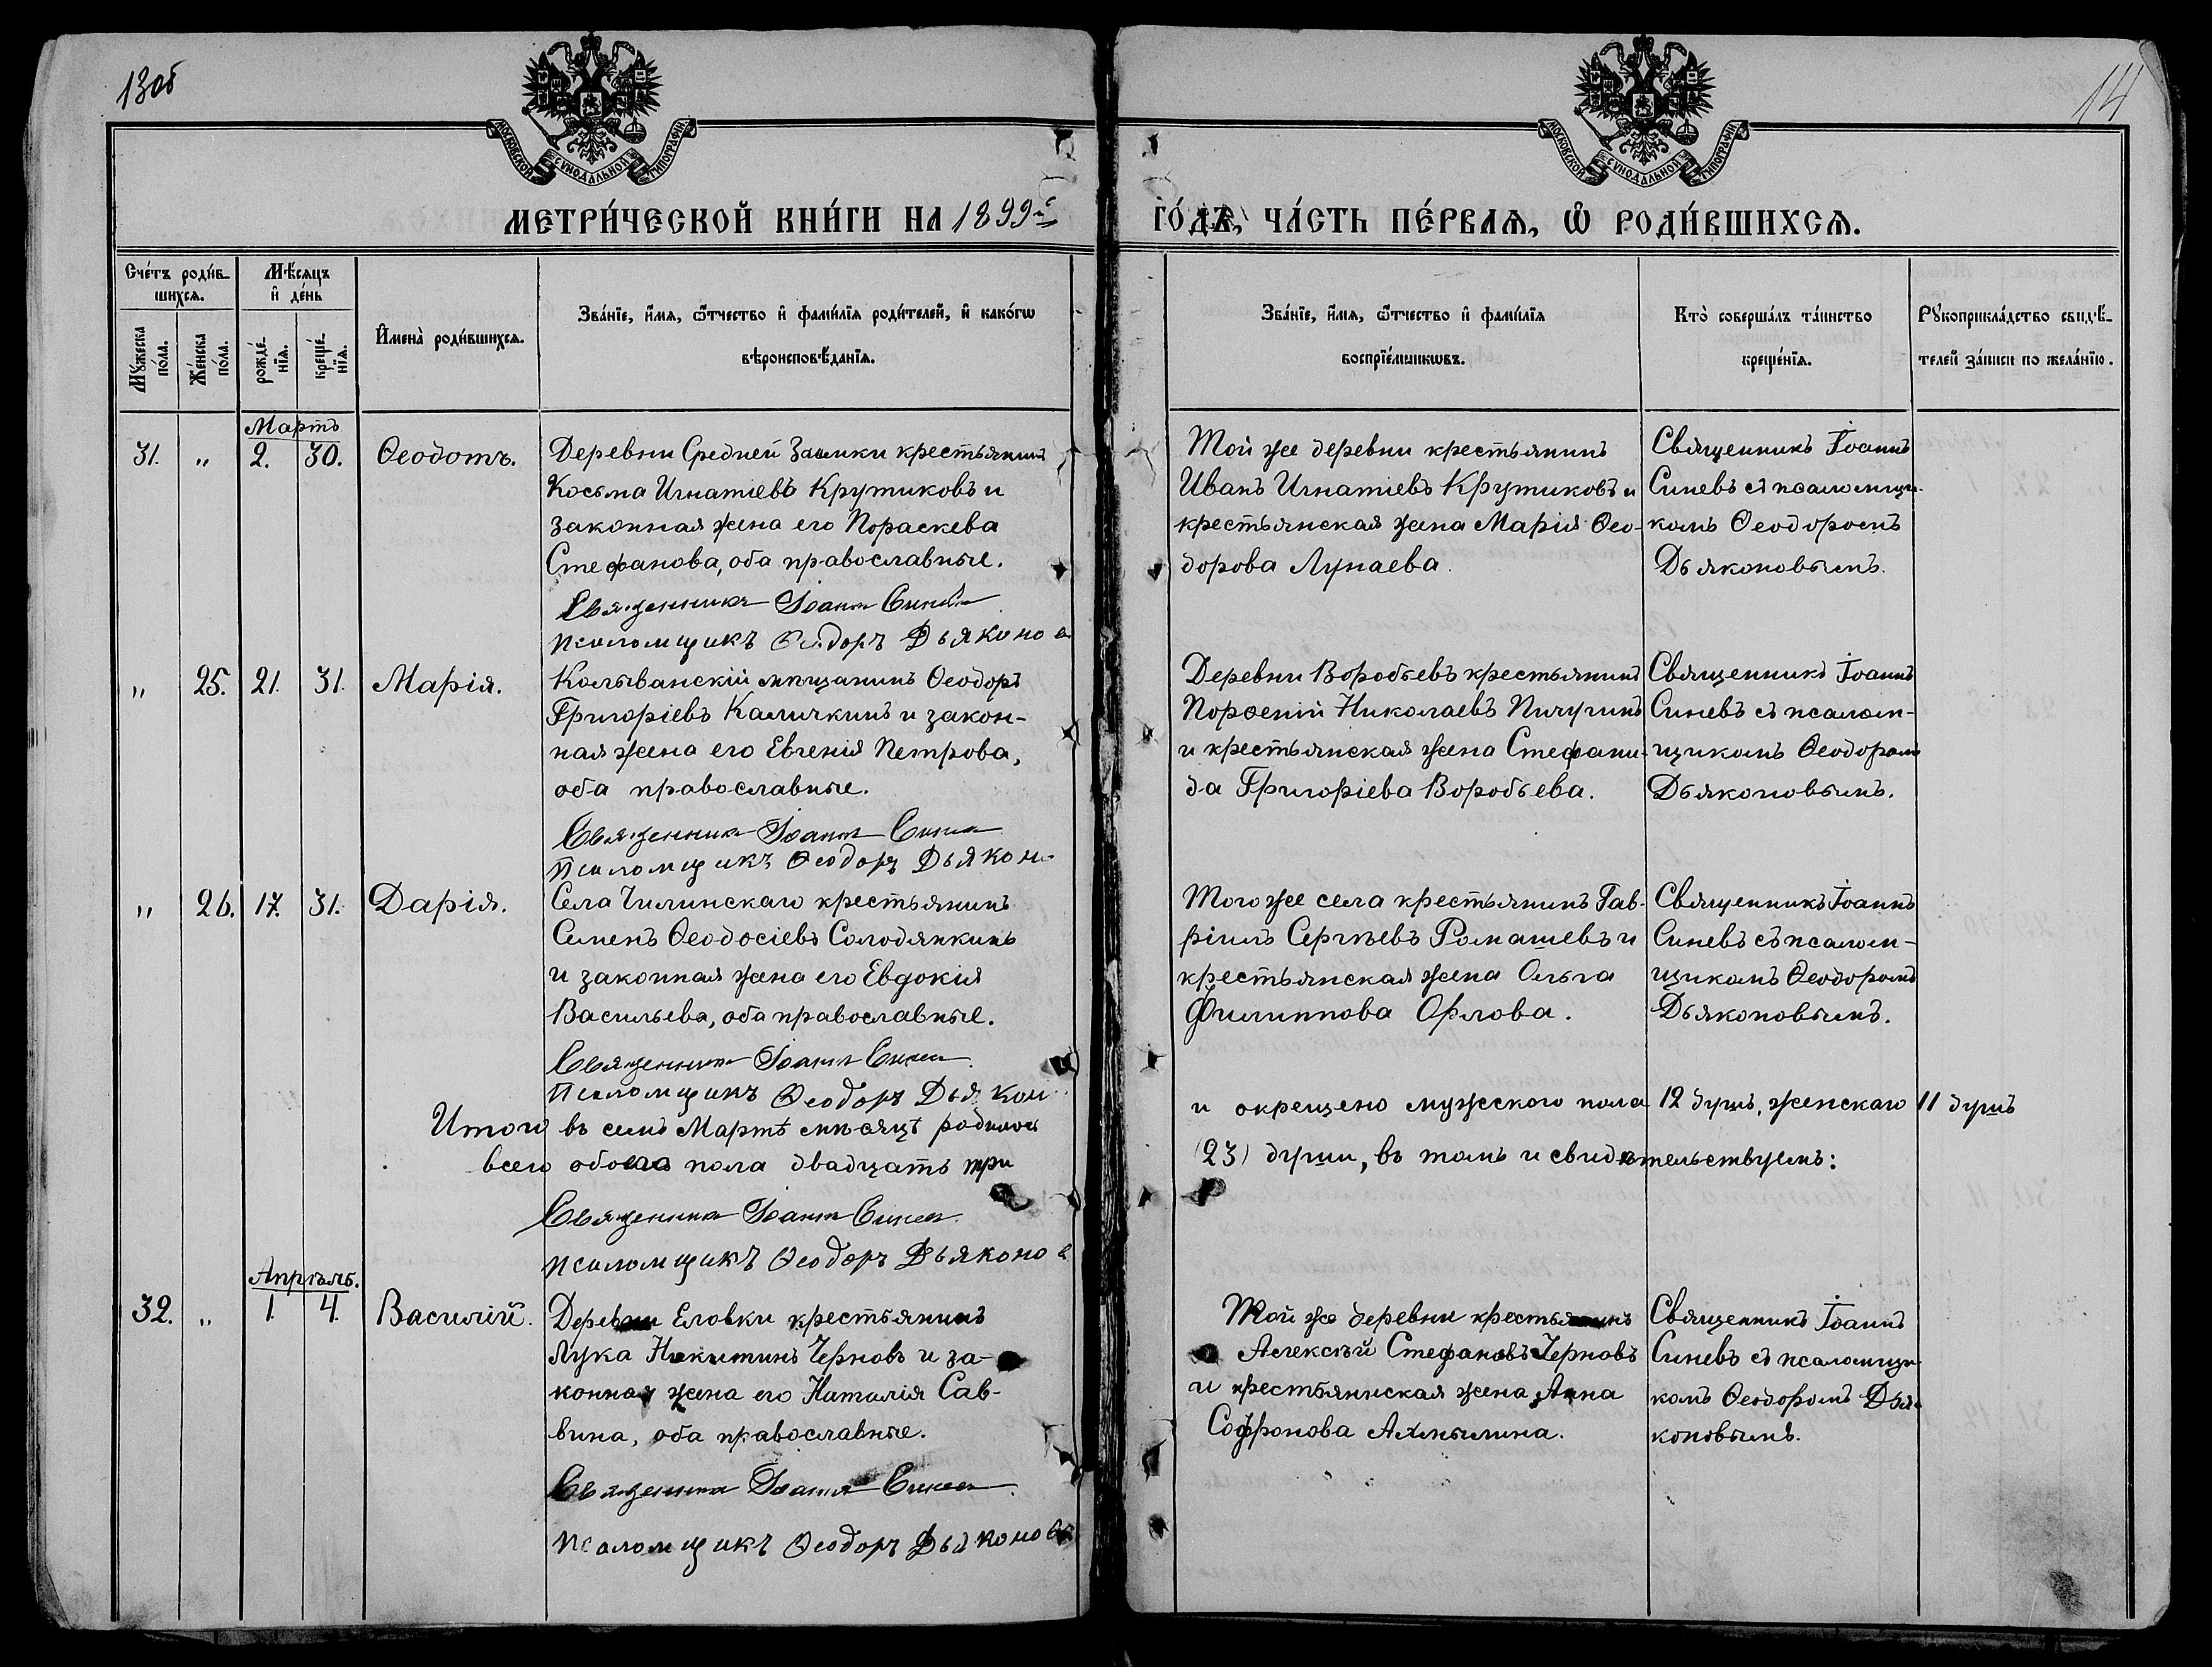 13об
14
МОСКОВСКОЙ СѴНОДАЛЬНОЙ ТИПОГРАФІИ
МОСКОВСКОЙ СѴНОДАЛЬНОЙ ТИПОГРАФІИ
МЕТРИ́ЧЕСКОЙ КНИ́ГИ НА 1899й
ГО́ДЪ, ЧА́СТЬ ПЕ́РВАѦ, Ѿ РОДИ́ВШИХСѦ.
Сче́тъ роди́в-
шихсѧ.
Мѣ́сѧцъ
и҆ де́нь
Мꙋ́жеска
по́ла.
Же́нска
по́ла.
рожде́-
нїѧ.
креще́-
нїѧ.
И҆мена̀ роди́вшихсѧ.
Зва́нїе, и҆́мѧ, ѻ҆́тчество и҆ фами́лїѧ роди́телей, и҆ како́гѡ
вѣроисповѣ́данїѧ.
Зва́нїе, и҆́мѧ, ѻ҆́тчество и҆ фами́лїѧ
воспрїе́мникѡвъ.
Кто̀ соверша́лъ та́инство
креще́нїѧ.
Рꙋкоприкла́дство свидѣ́-
телей за́писи по жела́нїю.
Мартъ
31. " 2. 30. Ѳеодотъ.
Деревни Средней Заимки крестьянинъ
Косьма Игнатіевъ Крутиковъ и
законная жена его Параскева
Стефанова, оба православные.
Священникъ Іоаннъ Синевъ
Псаломщикъ Ѳеодоръ Дьяконов
Той же деревни крестьянинъ
Иванъ Игнатіевъ Крутиковъ и
крестьянская жена Марія Ѳео-
дорова Лунаева.
Священникъ Іоаннъ
Синевъ съ псаломщи-
комъ Ѳеодоромъ
Дьяконовымъ.
" 25. 21. 31. Марія.
Колыванскій мѣщанинъ Ѳеодоръ
Григоріевъ Каличкинъ и закон-
ная жена его Евгенія Петрова,
оба православные.
Священникъ Іоаннъ Синевъ
Псаломщикъ Ѳеодоръ Дьякон
Деревни Воробьевъ крестьянинъ
Порфеній Николаевъ Пичугинъ
и крестьянская жена Стефани-
да Григоріева Воробьева.
Священникъ Іоаннъ
Синевъ съ псалом-
щикомъ Ѳеодоромъ
Дьяконовымъ.
" 26. 17. 31. Дарія.
Села Чилинскаго крестьянинъ
Семенъ Ѳеодосіевъ Солодянкинъ
и законная жена его Евдокія
Васильева, оба православные.
Священникъ Іоаннъ Синевъ
Псаломщикъ Ѳеодоръ Дьякон
Того же села крестьянинъ Гав-
ріилъ Сергѣевъ Ромашевъ и
крестьянская жена Ольга
Филиппова Орлова.
Священникъ Іоаннъ
Синевъ съ псалом-
щикомъ Ѳеодоромъ
Дьяконовымъ.
Итого въ семъ Мартѣ мѣсяцѣ родилось
и окрещено мужескаго пола 12 душъ, женскаго 11 душъ
всего обоего пола двадцать три
(23) души, въ томъ и свидѣтельствуемъ:
Священникъ Іоаннъ Синевъ
Псаломщикъ Ѳеодоръ Дьяконов
Апрѣль.
32. " 1. 4. Василій.
Деревни Еловки крестьянинъ
Лука Никитинъ Черновъ и за-
конная жена его Наталія Сав-
вина, оба православные.
Священникъ Іоаннъ Синевъ
Псаломщикъ Ѳеодоръ Дьяконовъ
Той же деревни крестьянинъ
Алексѣй Стефановъ Черновъ
и крестьянская жена Анна
Софронова Ахмылина.
Священникъ Іоаннъ
Синевъ съ псаломщи-
комъ Ѳеодоромъ Дья-
коновымъ.